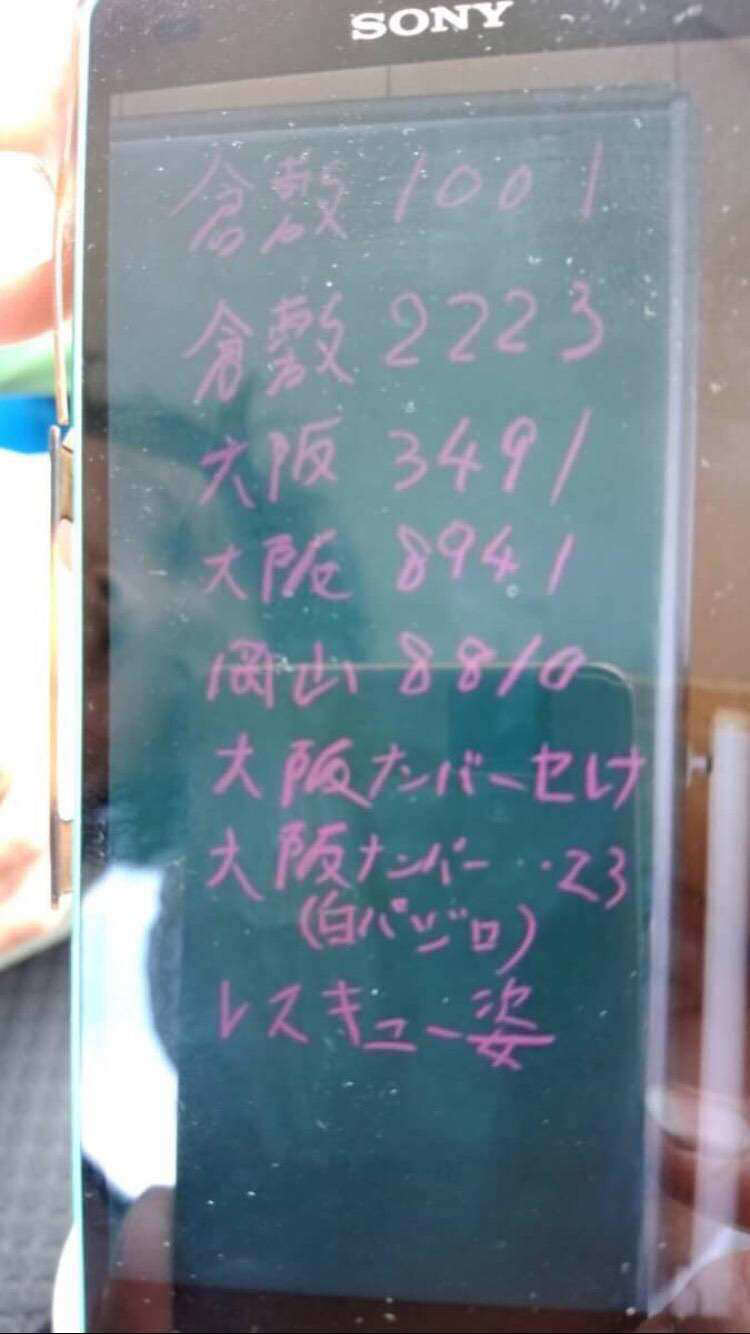 SONY
倉敷 1001
倉敷 2223
大阪 3491
大阪 8941
岡山 8810
大阪ナンバーセレナ
大阪ナンバー ・23
(白パジロ)
レスキュー姿